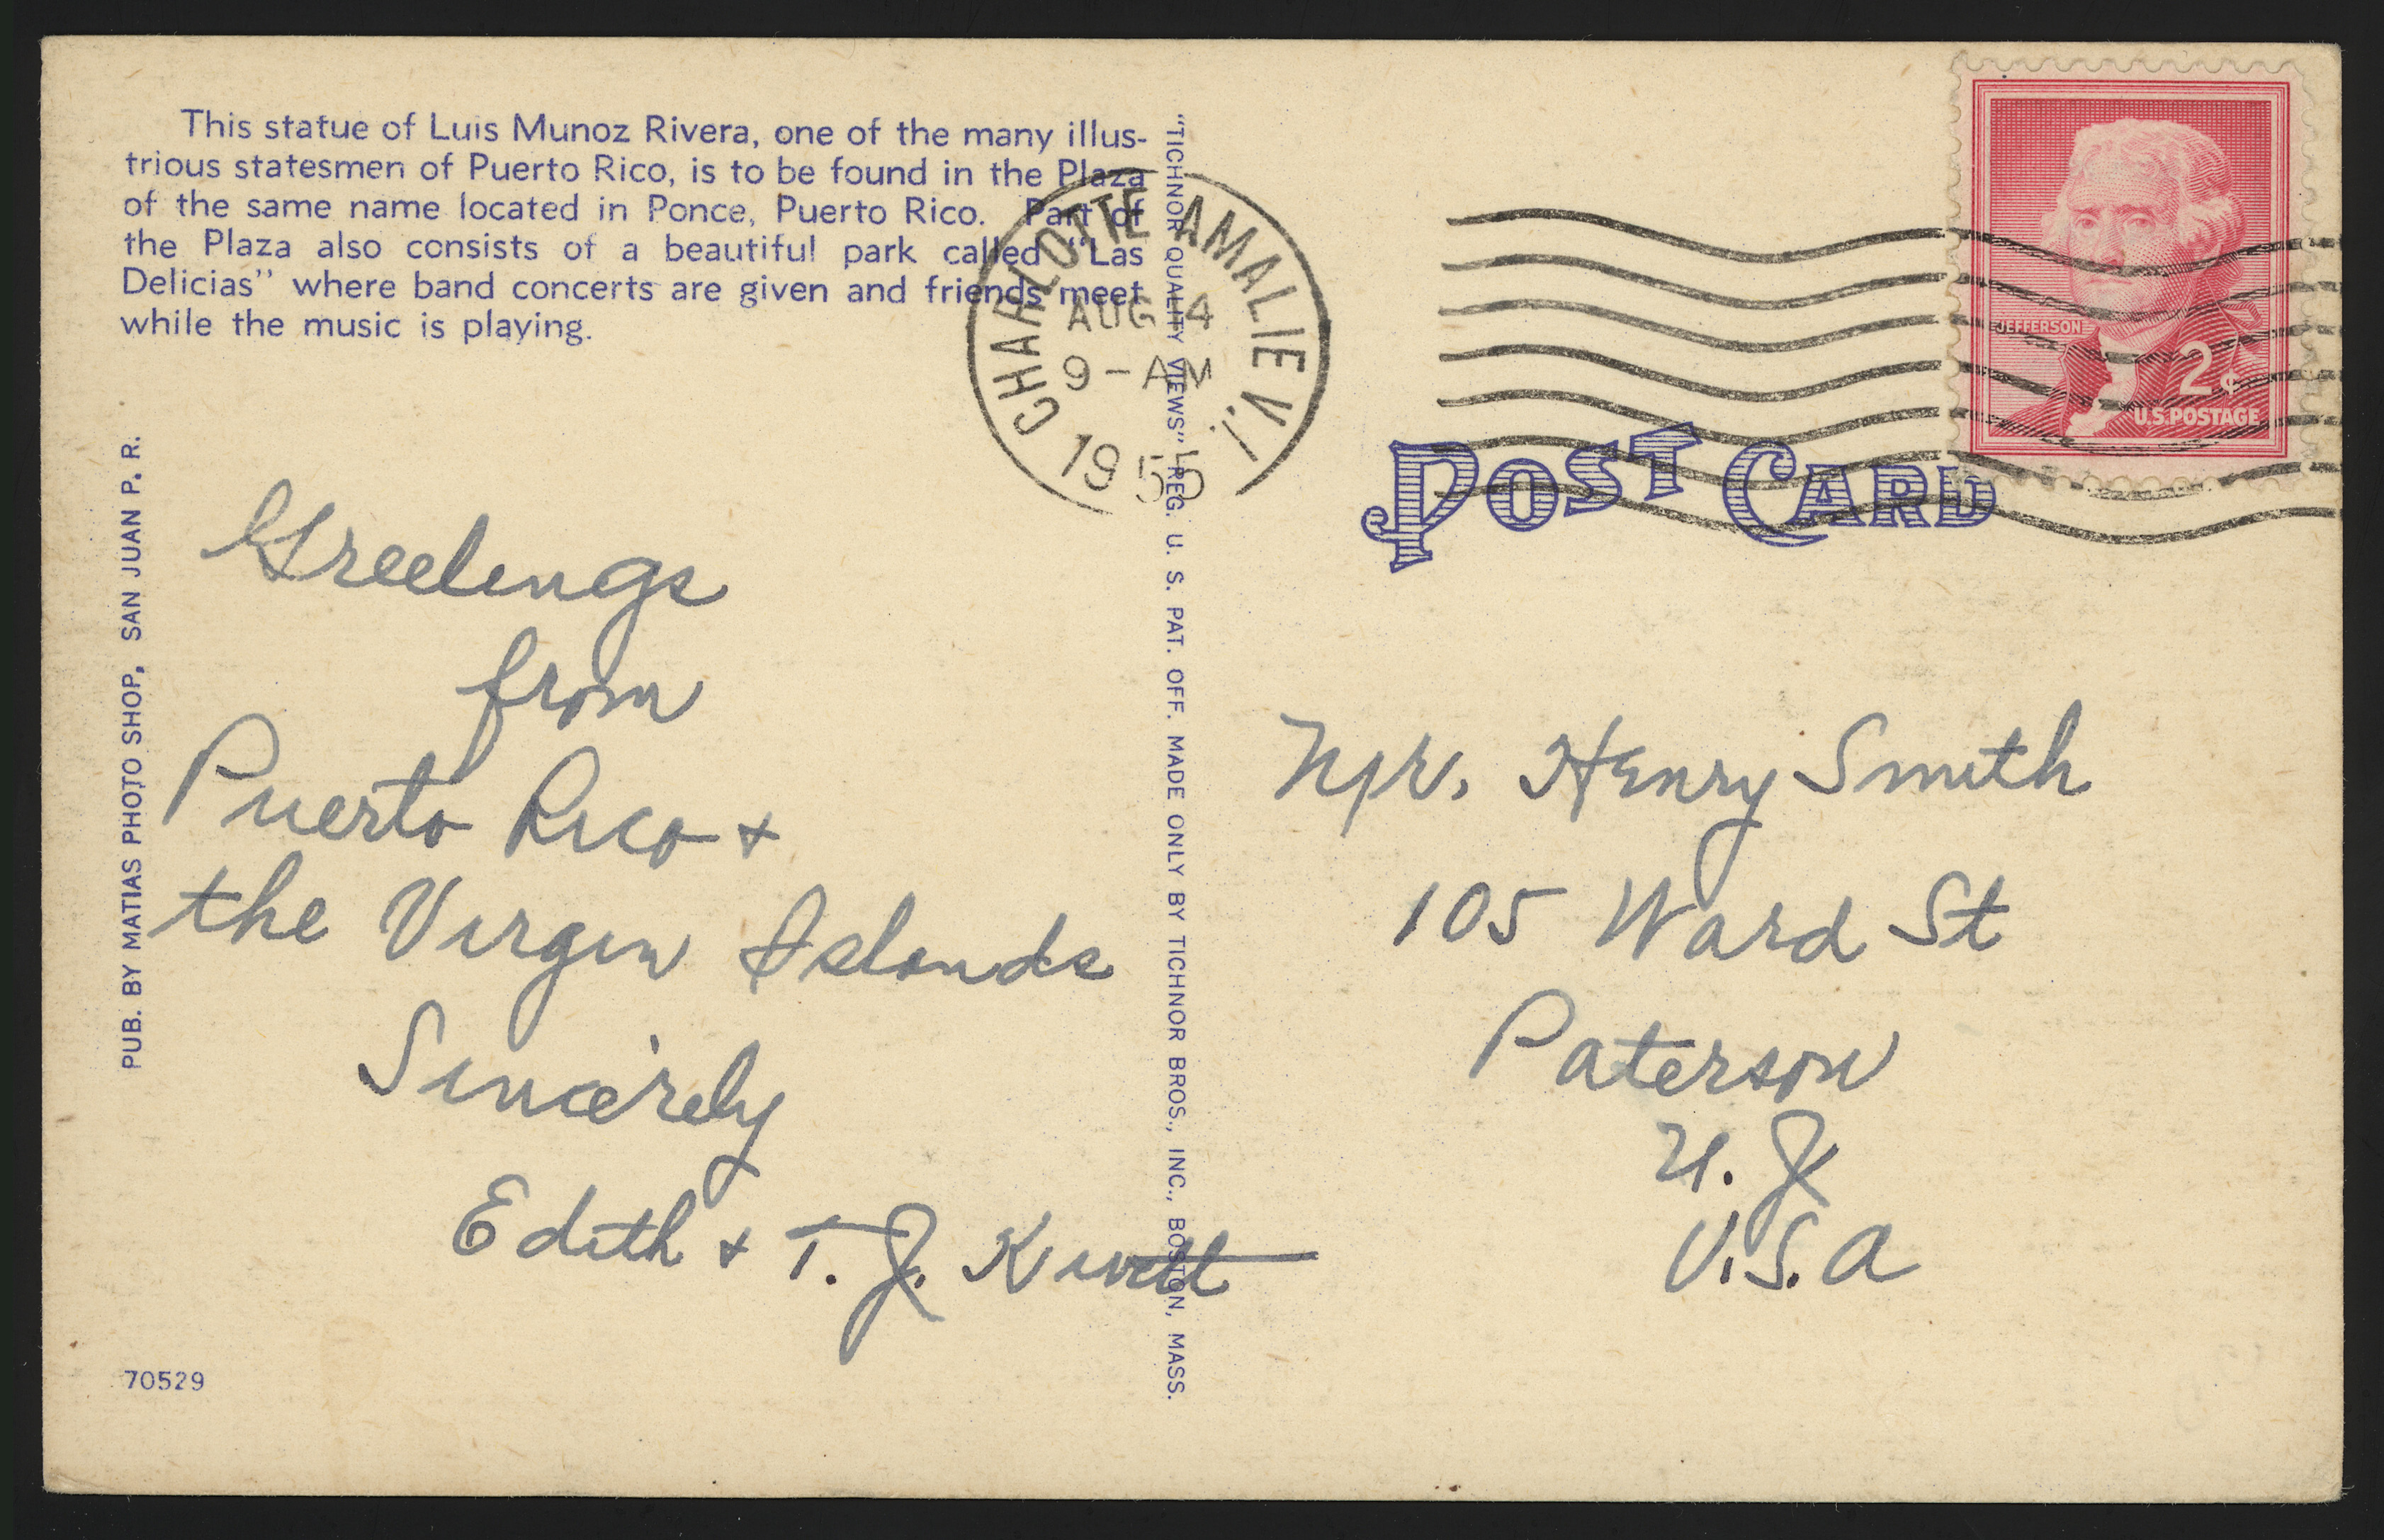 This statue of Luis Munoz Rivera, one of the many illus-
trious statesmen of Puerto Rico, is to be found in the Plaza
of the same name located in Ponce, Puerto Rico. Part of
the Plaza also consists of a beautiful park called "Las
Delicias" where band concerts are given and friends meet
while the music is playing.
PUB. BY MATIAS PHOTO SHOP, SAN JUAN P. R.
Greetings
from
Puerto Rico +
the Virgin Islands
Sincerely
Edith + T. J.
70529
"TICHNOR QUALITY VIEWS" REG. U. S. PAT. OFF. MADE ONLY BY TICHNOR BROS., INC., BOSTON, MASS.
CHARLOTTE AMALIE V.I.
AUG 4
9-AM
JEFFERSON
2¢
U.S. POSTAGE
POST CARD
Mr. Henry Smith
105 Ward St
Paterson
N. J
U.S.A